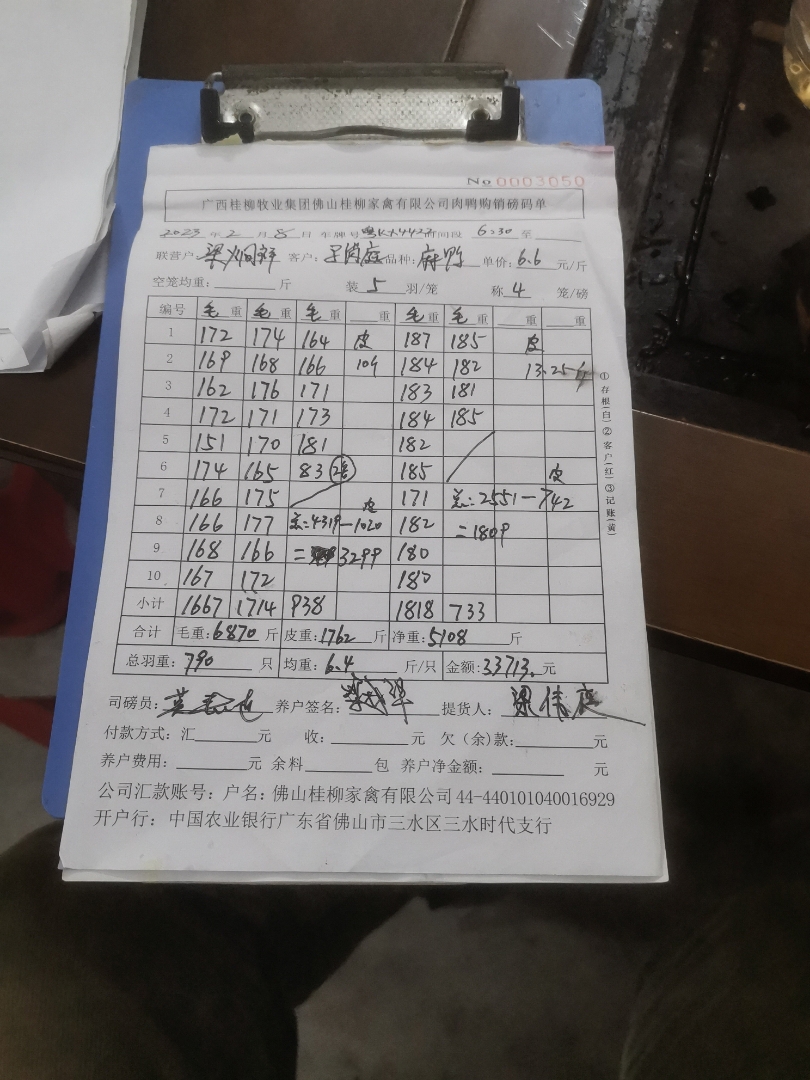 No 0003050
广西桂柳牧业集团佛山桂柳家禽有限公司肉鸭购销磅码单
2023 年 2 月 8 日 车牌号 时间段 6:30 至
联营户: 梁炯祥 客户: 品种: 麻鸭 单价: 6.6 元/斤
空笼均重: 斤 装 5 羽/笼 称 4 笼/磅
编号 毛重 毛重 毛重 重 毛重 毛重 重 重
1 172 174 164 皮 187 185 皮
2 169 168 166 10斤 184 182 13.25斤
3 162 176 171 183 181
4 172 171 173 184 185
5 151 170 181 182
6 174 165 83 185 皮
7 166 175 皮 171 总:2551-742
8 166 177 总:4319-1020 182 =1809
9 168 166 = 3299 180
10 167 172 180
小计 1667 1714 938 1818 733
合计 毛重: 6870 斤 皮重: 1762 斤 净重: 5108 斤
总羽重: 790 只 均重: 6.4 斤/只 金额: 33713. 元
司磅员: 养户签名: 提货人:
付款方式: 汇 元 收: 元 欠(余)款: 元
养户费用: 元 余料 包 养户净金额: 元
公司汇款账号: 户名: 佛山桂柳家禽有限公司 44-440101040016929
开户行: 中国农业银行广东省佛山市三水区三水时代支行
①存根(白)②客户(红)③记账(黄)